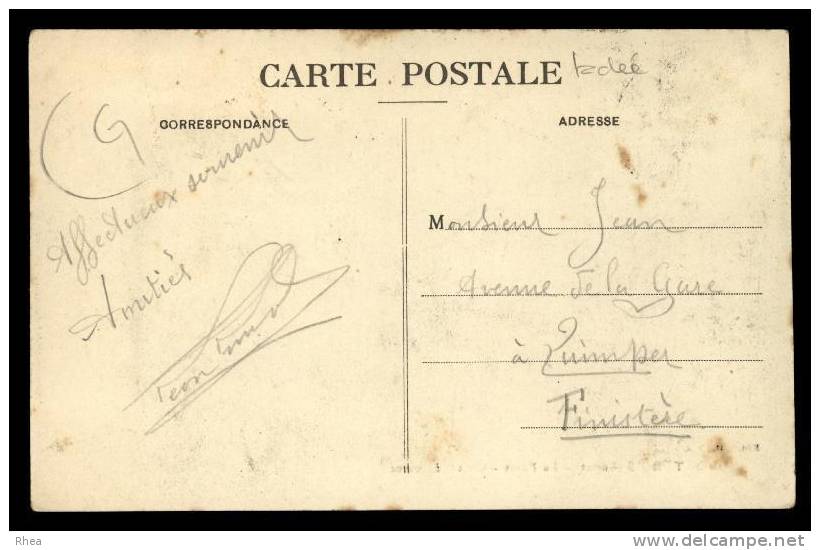 CARTE POSTALE
CORRESPONDANCE
ADRESSE
G
Affectueux souvenir
Amitiés
Monsieur Jean
Avenue de la Gare
à Quimper
Finistère
Rhea
www.delcampe.net